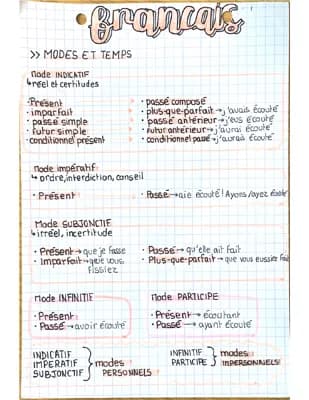 français
>> MODES ET TEMPS
Mode INDICATIF
↳ réel et certitudes
• Présent → • passé composé
• imparfait → • plus-que-parfait → j'avais écouté
• passé simple → • passé antérieur → j'eus écouté
• futur simple → • futur antérieur → j'aurai écouté
• conditionnel présent → • conditionnel passé → j'aurais écouté
Mode impératif
↳ ordre, interdiction, conseil
• Présent • Passé → aie écouté! Ayons/ayez écouté
Mode SUBJONCTIF
↳ irréel, incertitude
• Présent → que je fasse • Passé → qu'elle ait fait
• Imparfait → que vous • Plus-que-parfait → que vous eussiez fait
fissiez
Mode INFINITIF Mode PARTICIPE
• Présent • Présent → écoutant
• Passé → avoir écouté • Passé → ayant écouté
INDICATIF INFINITIF } modes
IMPÉRATIF } modes PARTICIPE IMPERSONNELS
SUBJONCTIF PERSONNELS